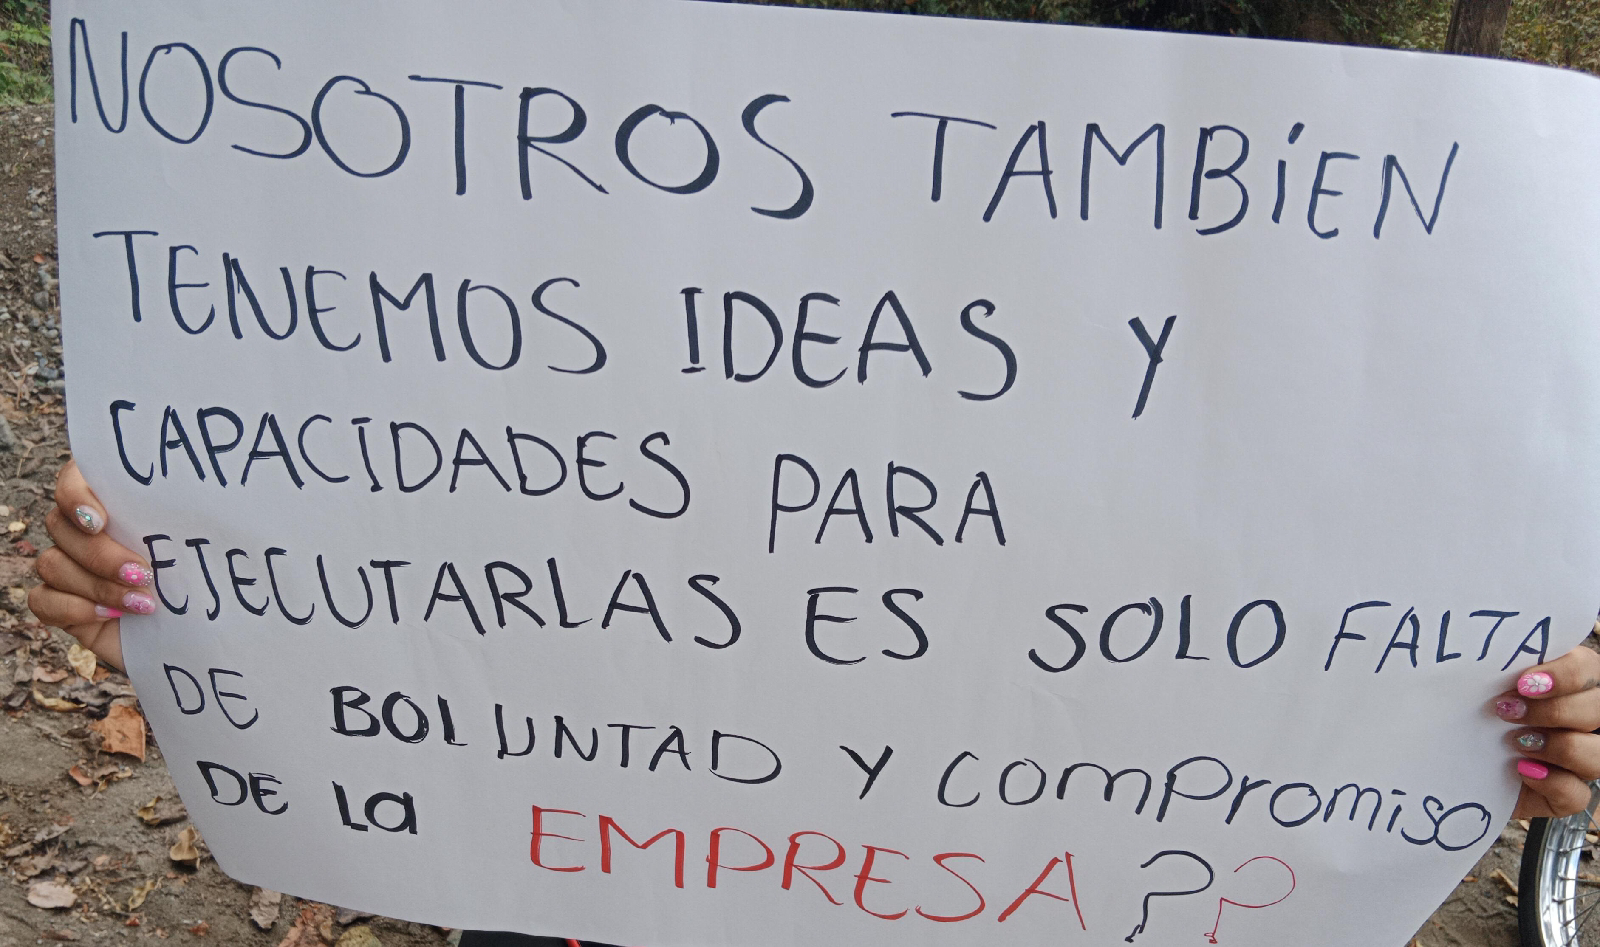 NOSOTROS TAMBIEN
TENEMOS IDEAS Y
CAPACIDADES PARA
EJECUTARLAS ES SOLO FALTA
DE BOLUNTAD Y compromiso
DE La EMPRESA??